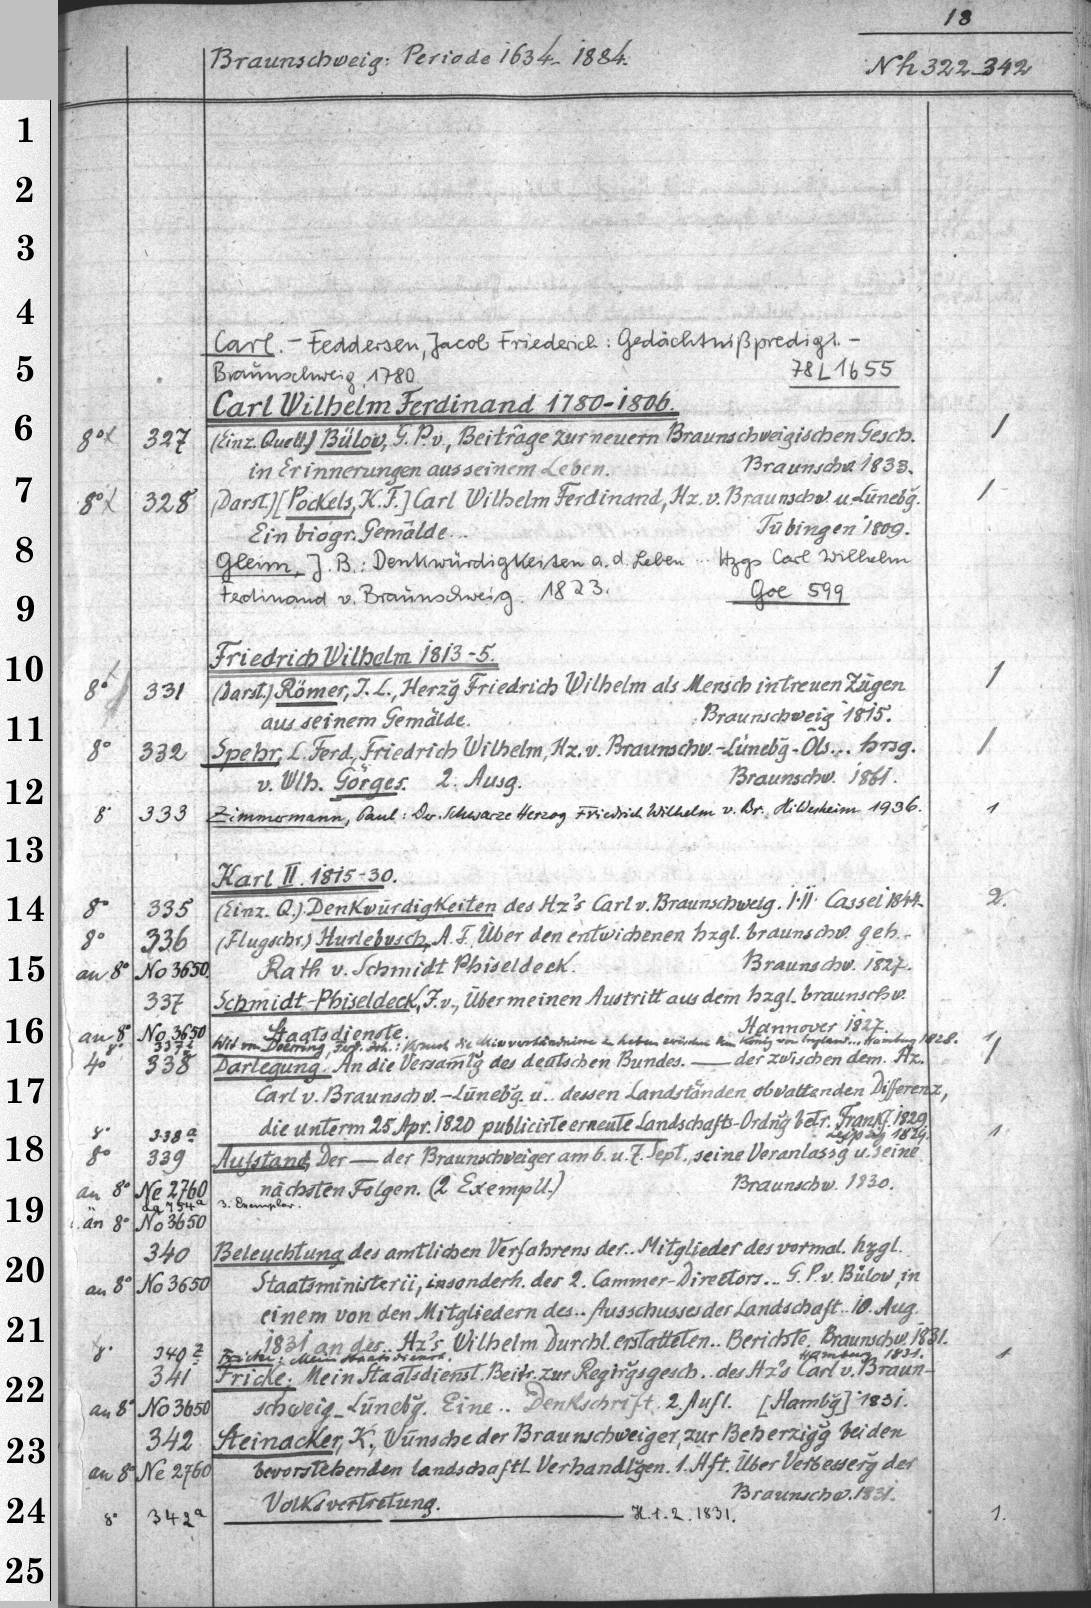 18
Braunschweig: Periode 1634-1884.
Nh 322-342
Carl. - Feddersen, Jacob Friederich: Gedächtnißpredigt. -
Braunschweig 1780
78 L 1655
Carl Wilhelm Ferdinand 1780-1806.
8° 327 (Einz. Quell.) Bülow, G. P. v., Beiträge zur neuern Braunschweigischen Gesch. 1
in Erinnerungen aus seinem Leben. Braunschw. 1833.
8° 328 (Darst.) [Pockels, K. F.] Carl Wilhelm Ferdinand, Hz. v. Braunschw. u. Lünebg̃. 1
Ein biogr. Gemälde... Tübingen 1809.
Gleim, J. B.: Denkwürdigkeiten a. d. Leben ... Hzgs Carl Wilhelm
Ferdinand v. Braunschweig. 1823. Goe 599
Friedrich Wilhelm 1813-5.
8° 331 (Darst.) Römer, J. L., Herzg̃ Friedrich Wilhelm als Mensch in treuen Zügen 1
aus seinem Gemälde. Braunschweig 1815.
8° 332 Spehr, L. Ferd., Friedrich Wilhelm, Hz. v. Braunschw.-Lünebg̃-Öls... hrsg. 1
v. Wlh. Görges. 2. Ausg. Braunschw. 1861.
8° 333 Zimmermann, Paul: Der Schwarze Herzog Friedrich Wilhelm v. Br. Hildesheim 1936. 1
Karl II. 1815-30.
8° 335 (Einz. Q.) Denkwürdigkeiten des Hz's Carl v. Braunschweig. I.II. Cassel 1844. 2.
8° 336 (Flugschr.) Hurlebusch, A. F., Über den entwichenen hzgl. braunschw. geh.
an 8° No 3650 Rath v. Schmidt Phiseldeck. Braunschw. 1827.
337 Schmidt-Phiseldeck, J. v., Über meinen Austritt aus dem hzgl. braunschw.
an 8° No 3650 Staatsdienste. Hannover 1827.
8° 337 Wit von Doerring, Ferd. Joh.: Versuch die Missverständnisse zu heben zwischen dem König von England... Hamburg 1828. 1
4° 338 Darlegung. An die Versam̃lg̃ des deutschen Bundes. — der zwischen dem Hz. 1
Carl v. Braunschw.-Lünebg̃. u. dessen Landständen obwaltenden Differenz,
die unterm 25 Apr. 1820 publicirte erneute Landschafts-Ordng̃ betr. Frankf. 1829.
8° 338a Leipzig 1829. 1.
8° 339 Aufstand, Der — der Braunschweiger am 6. u. 7. Sept., seine Veranlassg̃ u. seine
an 8° Ne 2760 nächsten Folgen. (2 Exempll.) Braunschw. 1830.
3. Exemplar.
an 8° No 3650
340 Beleuchtung des amtlichen Verfahrens der.. Mitglieder des vormal. hzgl.
an 8° No 3650 Staatsministerii, insonderh. des 2. Cammer-Directors... G. P. v. Bülow in
einem von den Mitgliedern des.. Ausschusses der Landschaft.. 10. Aug.
1831 an des.. Hz's Wilhelm Durchl. erstatteten.. Berichte. Braunschw. 1831.
8° 340z Fricke: Mein Staatsdienst. Hamburg 1831. 1
341 Fricke: Mein Staatsdienst. Beitr. zur Regirg̃sgesch.. des Hz's Carl v. Braun-
an 8° No 3650 schweig-Lünebg̃. Eine.. Denkschrift. 2. Aufl. [Hambg̃] 1831.
342 Steinacker, K., Wünsche der Braunschweiger, zur Beherzigg̃ bei den
an 8° Ne 2760 bevorstehenden landschaftl. Verhandlg̃en. 1. Hft. Über Verbesserg̃ der
Volksvertretung. Braunschw. 1831.
8° 342a — — H. 1. 2. 1831. 1.
1
2
3
4
5
6
7
8
9
10
11
12
13
14
15
16
17
18
19
20
21
22
23
24
25